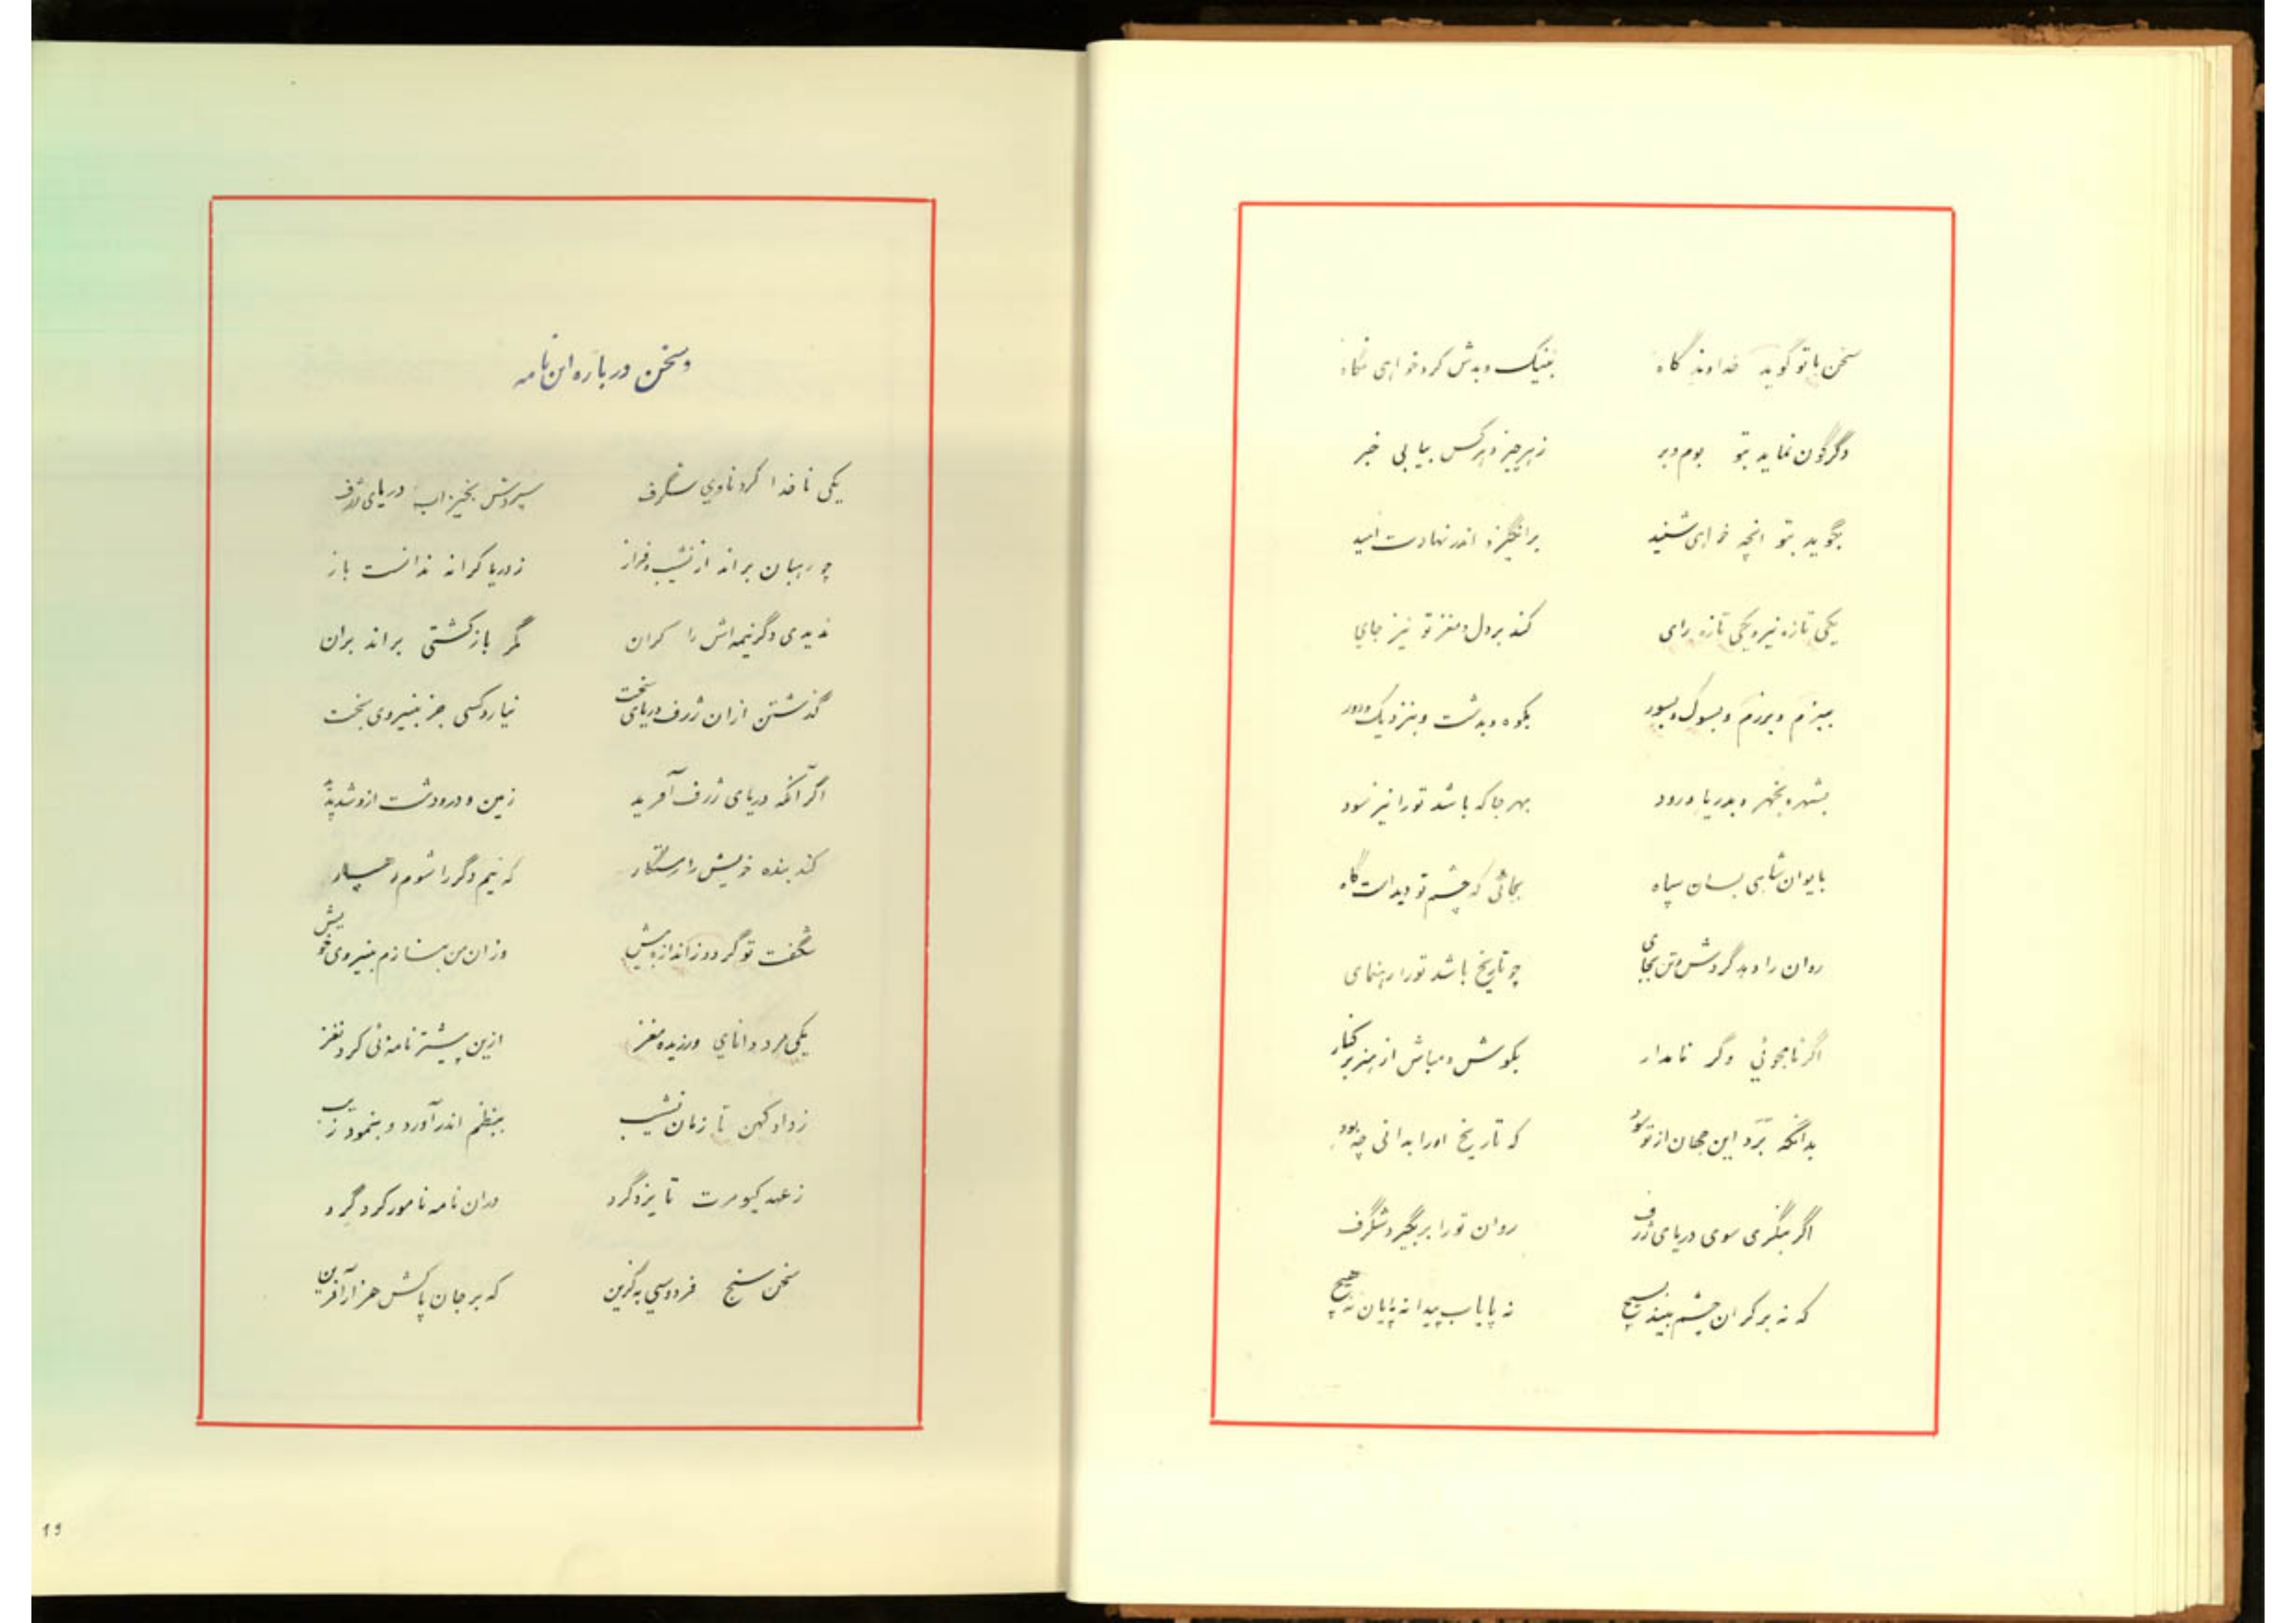 سخن با تو گوید خداوند گاه بنیک و بدش کرد خواهی نگاه
دگرگون نماید بتو بوم و بر ز هر چیز و هر کس بیابی خبر
بگوید بتو انچه خواهی شنید برانگیزد اندر نهادت امید
یکی تازه نیرو یکی تازه رای کند بر دل و مغز تو نیز جای
ببزم و برزم و بسوک و بسور بکوه و بدشت و بنزدیک و دور
بشهر و بدریا و رود بهر جا که باشد تو را نیز سود
بایوان شاهی بسان سپاه بجائی که چشم تو دیدست گاه
روان را دهد گردش و تن بجای چو تاریخ باشد تو را رهنمای
اگر نامجوئی وگر نامدار بکوش و مباش از هنر بر کنار
بدانگه برد این جهان از تو سود که تاریخ او را بدانی چه بود
اگر بنگری سوی دریای ژرف روان تو را بر بگیرد شگرف
که نه بر کران چشم بیند بسیچ نه پایاب پیدا نه پایان نه هیچ
و سخن درباره این نامه
یکی ناخدا کرد ناوی شگرف سپردش بخیزاب دریای ژرف
چو رهبان براند از نشیب و فراز ز دریا کرانه ندانست باز
ندیدی دگر نیمه‌اش را کران مگر باز کشتی براند بران
گذشتن ازان ژرف دریای سخت نیارد کسی جز بنیروی بخت
اگر آنکه دریای ژرف آفرید زمین و در و دشت ازو شد پدید
کند بنده خویش را رستگار که نیم دگر را شوم رهسپار
شگفت تو گردد ز اندازه بیش وزان من بنازم بنیروی خویش
یکی مرد دانای ورزیده مغز ازین پیشتر نامه‌ئی کرد نغز
ز داد کهن تا زمان نشیب بنظم اندر آورد و بنمود زیب
ز عهد کیومرت تا یزدگرد دران نامه نامور کرد گرد
سخن سنج فردوسی به گزین که بر جان پاکش هزار آفرین
19